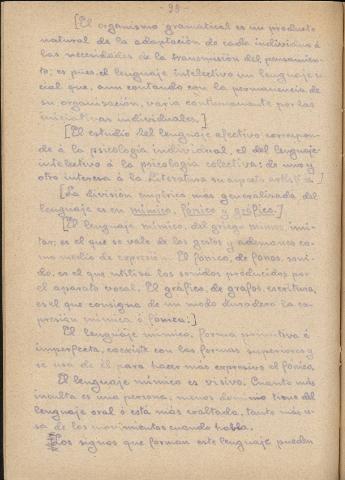 98-
[El organismo gramatical es un producto
natural de la adaptación de cada individuo á
las necesidades de la transmisión del pensamien-
to; es pues el lenguaje intelectivo un lenguaje so-
cial que, aun contando con la permanencia de
su organización, varia continuamente por las
iniciativas individuales.]
[El estudio del lenguaje afectivo correspon-
de á la psicología individual, el del lenguaje
intelectivo á la psicología colectiva: de uno y
otro interesa á la Literatura su aspecto artístico]
[La división empírica más generalizada del
lenguaje es en mímico, fónico y gráfico.]
[El lenguaje mímico, del griego mimos, imi-
tar, es el que se vale de los gestos y ademanes co-
mo medio de expresión. El fónico, de fonos, soni-
do, es el que utiliza los sonidos producidos por
el aparato vocal. El gráfico, de grafos, escritura,
es el que consigna de un modo duradero la ex-
presión mímica ó fónica.]
El lenguaje mímico, forma primitiva é
imperfecta, coexiste con las formas superiores y
se usa de él para hacer más expresivo el fónico.
El lenguaje mímico es visivo. Cuanto más
inculta es una persona, menos dominio tiene del
lenguaje oral ó está más exaltada, tanto más u-
sa de los movimientos cuando habla.
Los signos que forman este lenguaje pueden